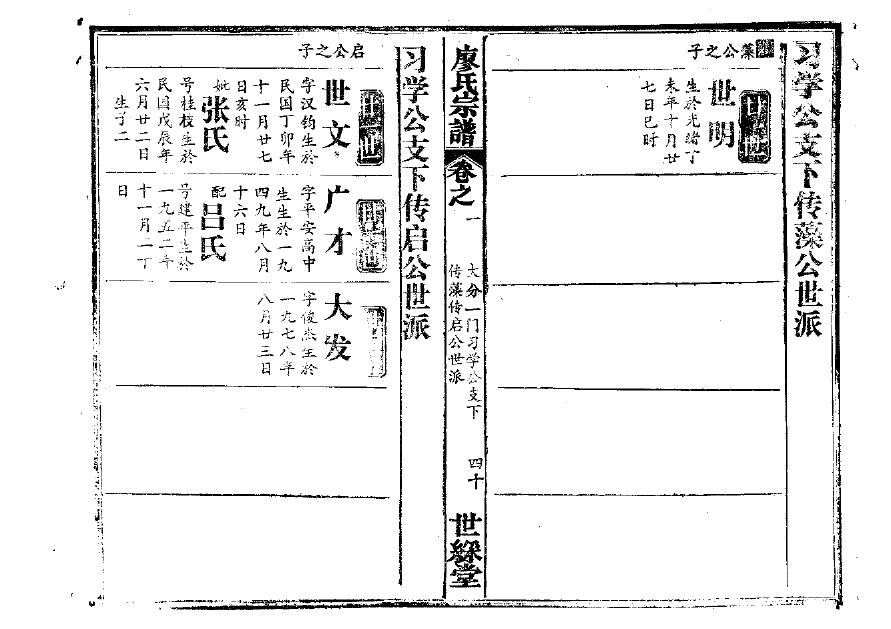 习学公支下传藻公世派
藻公之子
世明
生於光绪丁
未年十月廿
七日巳时
廖氏宗譜
卷之一
大分一门习学公支下
传藻传启公世派
四十
世綵堂
习学公支下传启公世派
启公之子
世文
字汉钧生於
民国丁卯年
十一月廿七
日亥时
妣张氏
号桂枝生於
民国戊辰年
六月廿二日
生子二
广才
字平安高中
生生於一九
四九年八月
十六日
配吕氏
号建平生於
一九五二年
十一月二丁
日
大发
字俊杰生於
一九七八年
八月廿三日